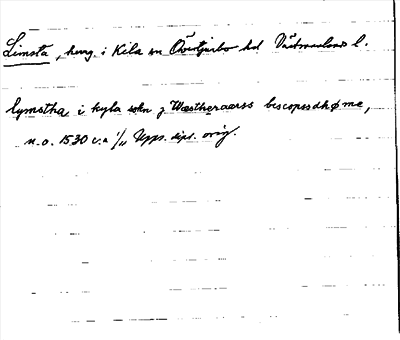 Limsta, herg. i Kila sn Övertjurbo hd Västmanlands l.
lymstha i kyla sokn z Wæstheraarss biscopssdhøme,
u.o. 1530 c.a 1/11 Upps. dipl. orig.